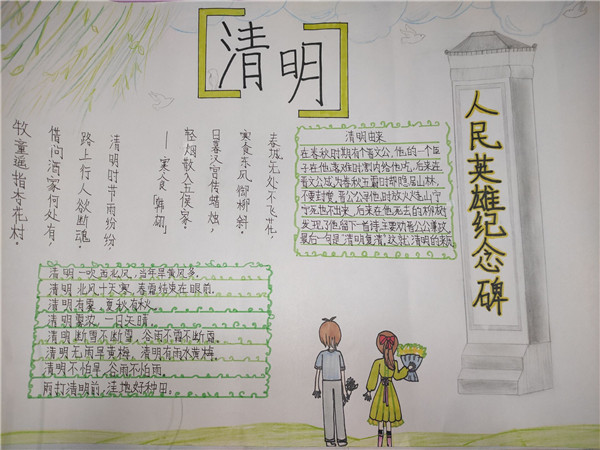 清明
春城无处不飞花,
寒食东风御柳斜.
日暮汉宫传蜡烛,
轻烟散入五侯家.
—寒食 韩翃
清明时节雨纷纷
路上行人欲断魂.
借问酒家何处有,
牧童遥指杏花村.
清明由来
在春秋时期有个晋文公,他的一个臣
子在他落难时割肉给他吃,后来在
晋文公成为春秋五霸时却隐居山林,
不要封赏,晋公公寻他时放火烧山宁
宁死也不出来,后来在他死去的柳树
发现了他留下一首诗,主要劝晋公公
最后一句是"清明复清",这就清明的来
人民英雄纪念碑
清明一吹西北风,当年旱黄风多.
清明北风十天寒,春霜结束在眼前.
清明有雾,夏秋有秋.
清明雾浓,一日天晴
清明断雪不断雪,谷雨不霜不断霜.
清明无雨旱黄梅,清明有雨水黄梅.
清明不怕旱,谷雨不怕雨.
雨打清明前,洼地好种田.